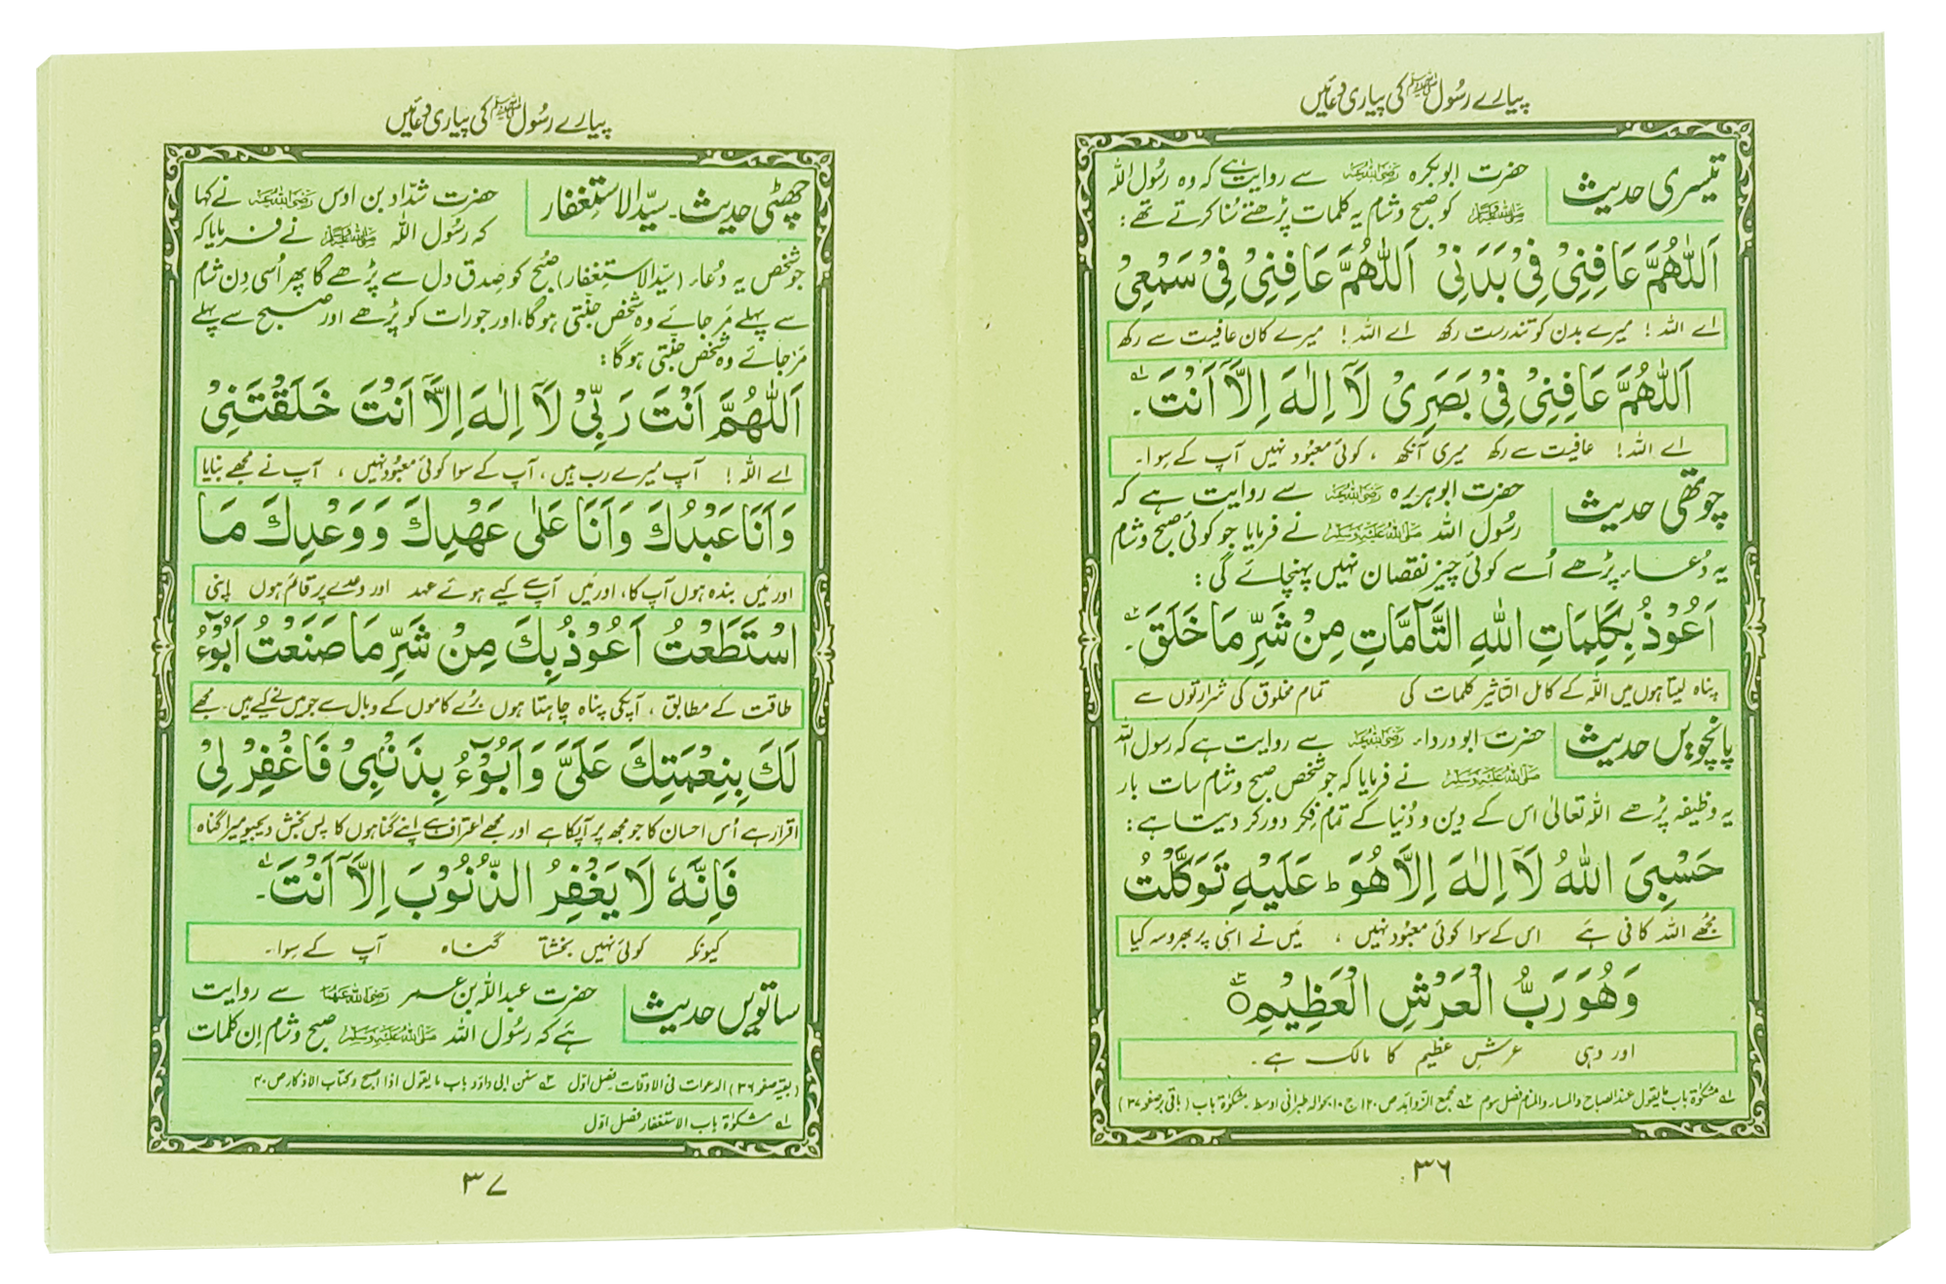 پیارے رسُول ﷺ کی پیاری دعائیں
تیسری حدیث
حضرت ابوبکرہ رضی اللہ عنہ سے روایت ہے کہ وہ رسُول اللہ
صلی اللہ علیہ وسلم کو صبح و شام یہ کلمات پڑھتے سُنا کرتے تھے:
اَللّٰهُمَّ عَافِنِیْ فِیْ بَدَنِیْ اَللّٰهُمَّ عَافِنِیْ فِیْ سَمْعِیْ
اے اللہ! میرے بدن کو تندرست رکھ اے اللہ! میرے کان عافیت سے رکھ
اَللّٰهُمَّ عَافِنِیْ فِیْ بَصَرِیْ لَآ اِلٰهَ اِلَّآ اَنْتَ۔ ؎۱
اے اللہ! عافیت سے رکھ میری آنکھ ، کوئی معبُود نہیں آپ کے سِوا۔
چوتھی حدیث
حضرت ابوہریرہ رضی اللہ عنہ سے روایت ہے کہ
رسُول اللہ صلی اللہ علیہ وسلم نے فرمایا جو کوئی صبح و شام
یہ دُعاء پڑھے اُسے کوئی چیز نقصان نہیں پہنچائے گی:
اَعُوْذُ بِكَلِمَاتِ اللّٰهِ التَّآمَّاتِ مِنْ شَرِّ مَا خَلَقَ۔ ؎۲
پناہ لیتا ہوں میں اللہ کے کامل التاثیر کلمات کی تمام مخلوق کی شرارتوں سے
پانچویں حدیث
حضرت ابودرداء رضی اللہ عنہ سے روایت ہے کہ رسول اللہ
صلی اللہ علیہ وسلم نے فرمایا کہ جو شخص صبح و شام سات بار
یہ وظیفہ پڑھے اللہ تعالیٰ اس کے دین و دُنیا کے تمام فِکر دور کر دیتا ہے:
حَسْبِیَ اللّٰهُ لَآ اِلٰهَ اِلَّا هُوَ ط عَلَیْهِ تَوَكَّلْتُ
مجُھے اللہ کافی ہے اس کے سوا کوئی معبُود نہیں ، مَیں نے اسی پر بھروسہ کیا
وَهُوَ رَبُّ الْعَرْشِ الْعَظِیْمِ ۝ ؎۳
اور وہی عرشِ عظیم کا مالک ہے۔
؎۱ مشکوٰۃ باب ما یقول عند الصباح والمساء والمنام فصل سوم ؎۲ مجمع الزوائد ص ۱۲۰ ج ۱۰ بحوالہ طبرانی اوسط مشکوٰۃ باب (باقی بر صفحہ ۳۷)
۳۶
پیارے رسُول ﷺ کی پیاری دعائیں
چھٹی حدیث۔ سیّد الاستِغفار
حضرت شدّاد بن اوس رضی اللہ عنہ نے کہا
کہ رسُول اللہ صلی اللہ علیہ وسلم نے فرمایا کہ
جو شخص یہ دُعاء (سیّد الاستغفار) صُبح کو صِدق دل سے پڑھے گا پھر اُسی دِن شام
سے پہلے مَر جائے وہ شخص جنّتی ہوگا، اور جو رات کو پڑھے اور صبح سے پہلے
مَر جائے وہ شخص جنّتی ہوگا:
اَللّٰهُمَّ اَنْتَ رَبِّیْ لَآ اِلٰهَ اِلَّآ اَنْتَ خَلَقْتَنِیْ
اے اللہ! آپ میرے رب ہیں، آپ کے سوا کوئی معبُود نہیں، آپ نے مجھے بنایا
وَاَنَا عَبْدُكَ وَاَنَا عَلٰی عَهْدِكَ وَوَعْدِكَ مَا
اور مَیں بندہ ہوں آپ کا، اور مَیں آپ سے کیے ہوئے عہد اور وعدے پر قائم ہوں اپنی
اسْتَطَعْتُ اَعُوْذُ بِكَ مِنْ شَرِّ مَا صَنَعْتُ اَبُوْٓءُ
طاقت کے مطابق، آپکی پناہ چاہتا ہوں بُرے کاموں کے وبال سے جو میں نے کیے ہیں۔ مجھے
لَكَ بِنِعْمَتِكَ عَلَیَّ وَاَبُوْٓءُ بِذَنْۢبِیْ فَاغْفِرْ لِیْ
اقرار ہے اُس احسان کا جو مجھ پر آپکا ہے اور مجھے اعتراف ہے اپنے گناہوں کا پس بخش دیجیو میرا گناہ
فَاِنَّهٗ لَا یَغْفِرُ الذُّنُوْبَ اِلَّآ اَنْتَ۔ ؎۱
کیونکہ کوئی نہیں بخشتا گناہ آپ کے سِوا۔
ساتویں حدیث
حضرت عبداللہ بن عمر رضی اللہ عنہما سے روایت
ہے کہ رسُول اللہ صلی اللہ علیہ وسلم صبح و شام اِن کلمات
(بقیہ صفحہ ۳۶) الدعوات فی الاوقات فصل اوّل ؎۳ سنن ابی داود باب ما یقول اذا اصبح و کتاب الاذکار ص ۴۰
؎۱ مشکوٰۃ باب الاستغفار فصل اوّل
۳۷